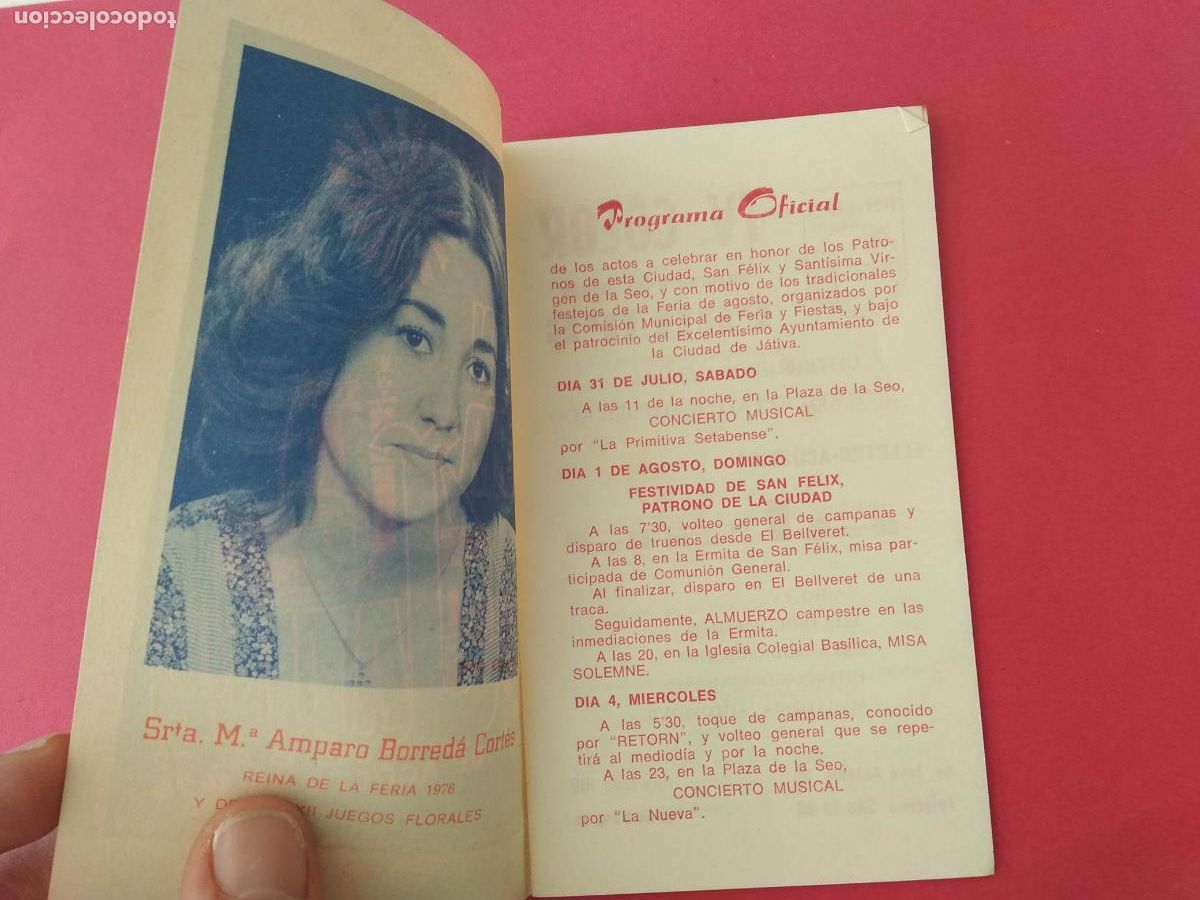 todocoleccion
Srta. M.ª Amparo Borredá Cortés
REINA DE LA FERIA 1976
Y DE XII JUEGOS FLORALES
Programa Oficial
de los actos a celebrar en honor de los Patro-
nos de esta Ciudad, San Félix y Santísima Vir-
gen de la Seo, y con motivo de los tradicionales
festejos de la Feria de agosto, organizados por
la Comisión Municipal de Feria y Fiestas, y bajo
el patrocinio del Excelentísimo Ayuntamiento de
la Ciudad de Játiva.
DIA 31 DE JULIO, SABADO
A las 11 de la noche, en la Plaza de la Seo,
CONCIERTO MUSICAL
por "La Primitiva Setabense".
DIA 1 DE AGOSTO, DOMINGO
FESTIVIDAD DE SAN FELIX,
PATRONO DE LA CIUDAD
A las 7'30, volteo general de campanas y
disparo de truenos desde El Bellveret.
A las 8, en la Ermita de San Félix, misa par-
ticipada de Comunión General.
Al finalizar, disparo en El Bellveret de una
traca.
Seguidamente, ALMUERZO campestre en las
inmediaciones de la Ermita.
A las 20, en la Iglesia Colegial Basílica, MISA
SOLEMNE.
DIA 4, MIERCOLES
A las 5'30, toque de campanas, conocido
por "RETORN", y volteo general que se repe-
tirá al mediodía y por la noche.
A las 23, en la Plaza de la Seo,
CONCIERTO MUSICAL
por "La Nueva".